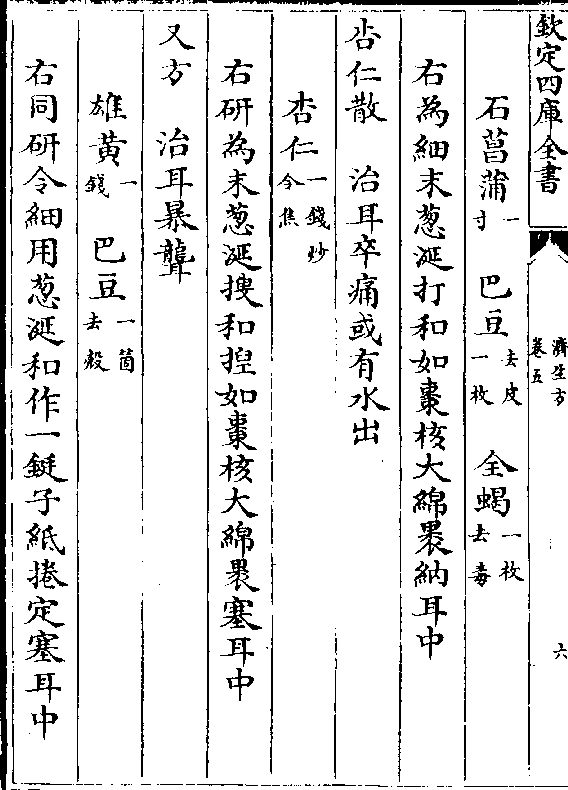 欽定四庫全書
濟生方
卷五
六
石菖蒲一寸 巴豆去皮一枚 全蝎一枚去毒
右為細末葱涎打和如棗核大綿褁納耳中
杏仁散 治耳卒痛或有水出
杏仁一錢炒令焦
右研為末葱涎搜和揑如棗核大綿褁塞耳中
又方 治耳暴聾
雄黃一錢 巴豆一箇去殼
右同研令細用葱涎和作一鋌子紙捲定塞耳中